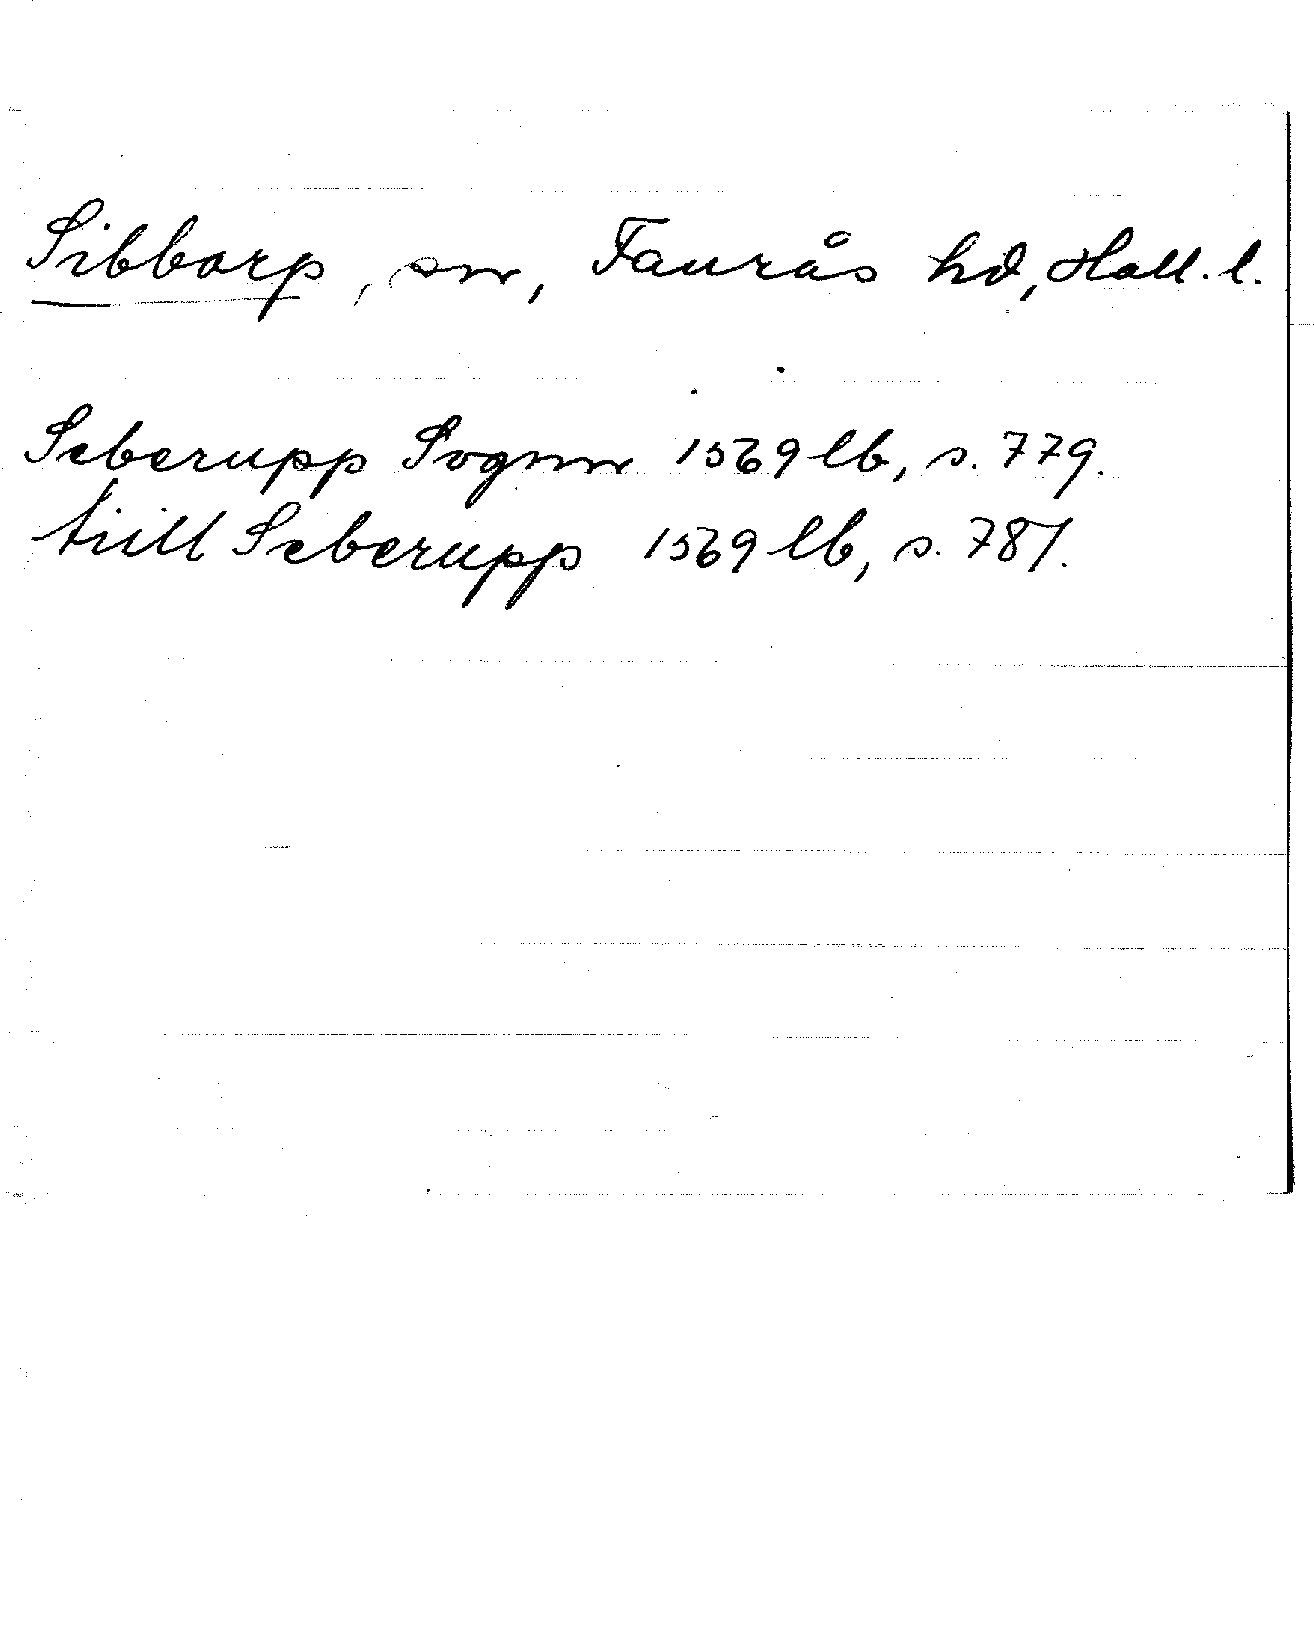 Sibbarp, sn, Faurås hd, Hall. l.
Seberupp Sognn 1569 lb, s. 779.
tiill Seberupp 1569 lb, s. 787.